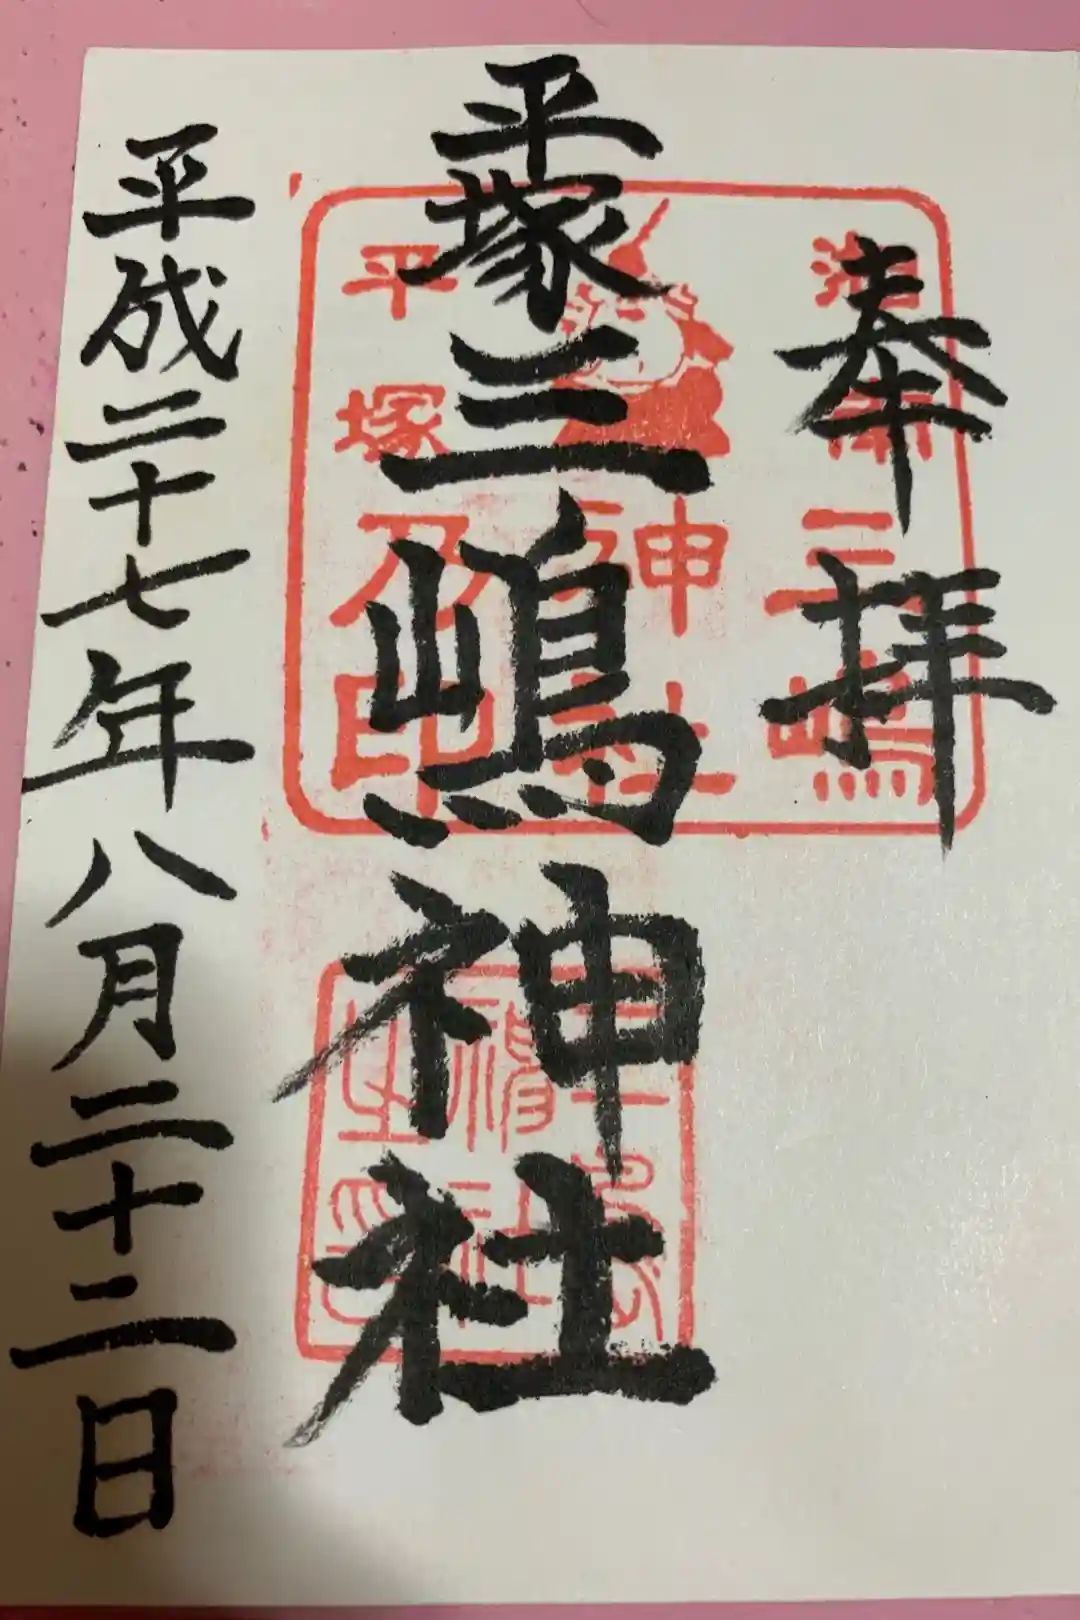 奉拝
平塚三嶋神社
平成二十七年八月二十二日
湘南三嶋
神社
平塚乃印
三嶋
神社
之印